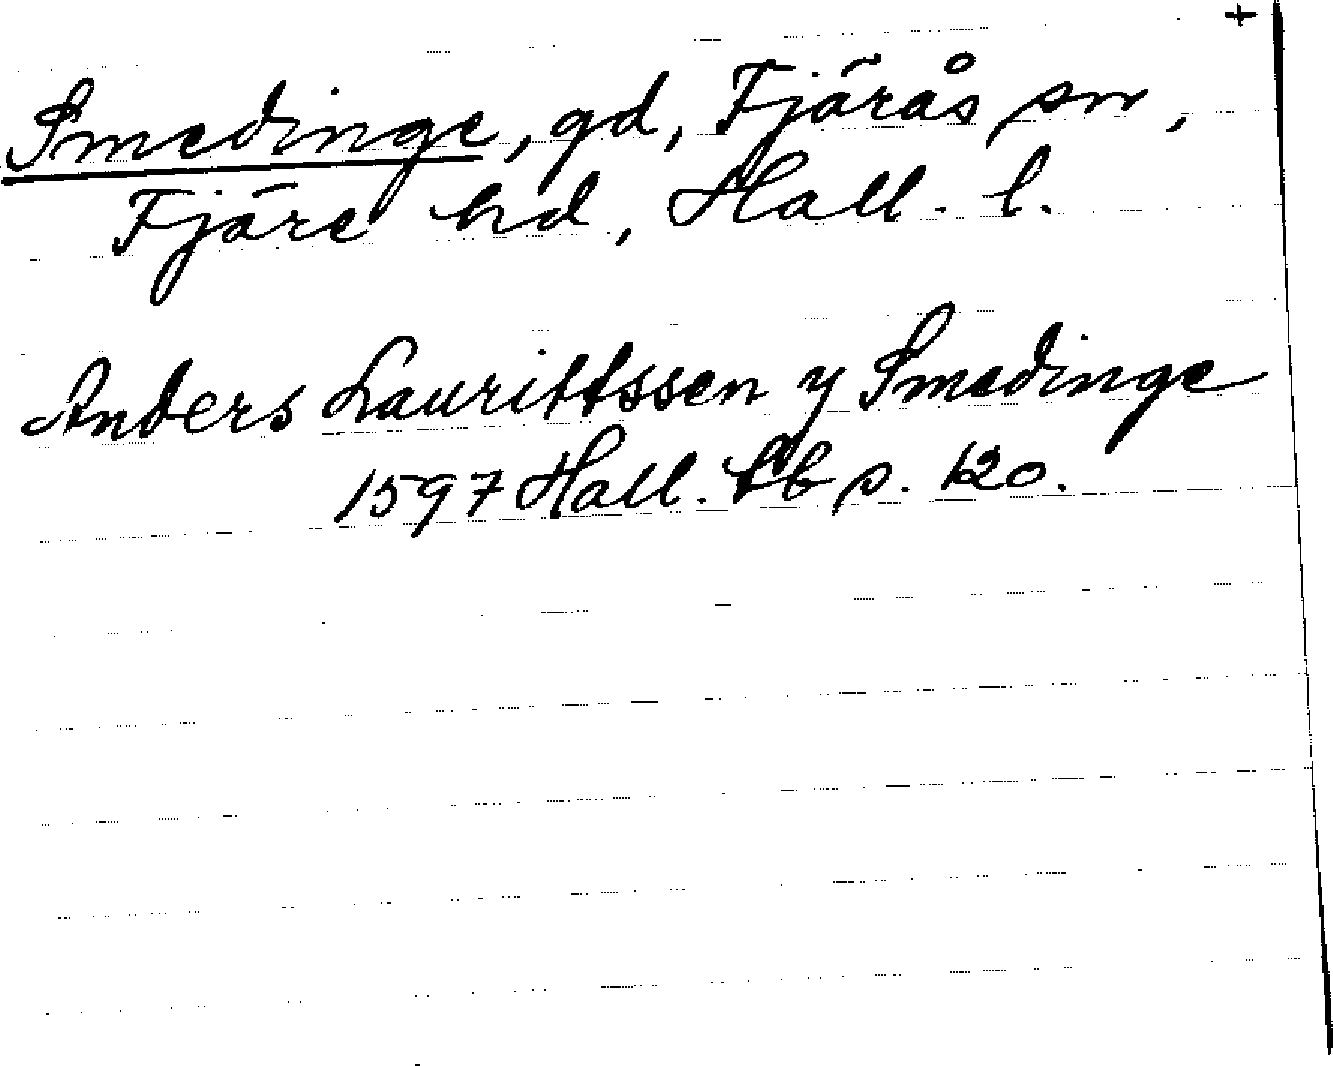 +
Smedinge, gd, Fjärås sn,
Fjäre hd, Hall. l.
Anders Laurittssen y Smedinge
1597 Hall. lb s. 120.